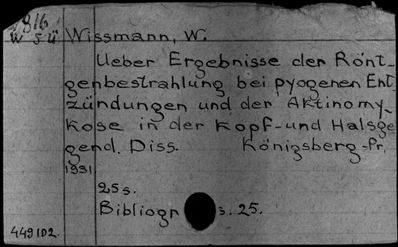 816
W 5 ü Wissmann, W.
Ueber Ergebnisse der Rönt-
genbestrahlung bei pyogenen Ent-
zündungen und der Aktinomy-
kose in der Kopf- und Halsge-
gend. Diss. Königsberg-Pr.
1931.
25 s.
Bibliogr s. 25.
449102.